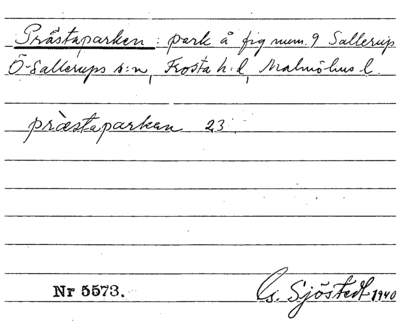 Prästaparken: park å fig num. 9 Sallerup
Ö-Sallerups s:n, Frosta h:d, Malmöhus l.
præstaparkan 23.
Nr 5573.
G. Sjöstedt 1940